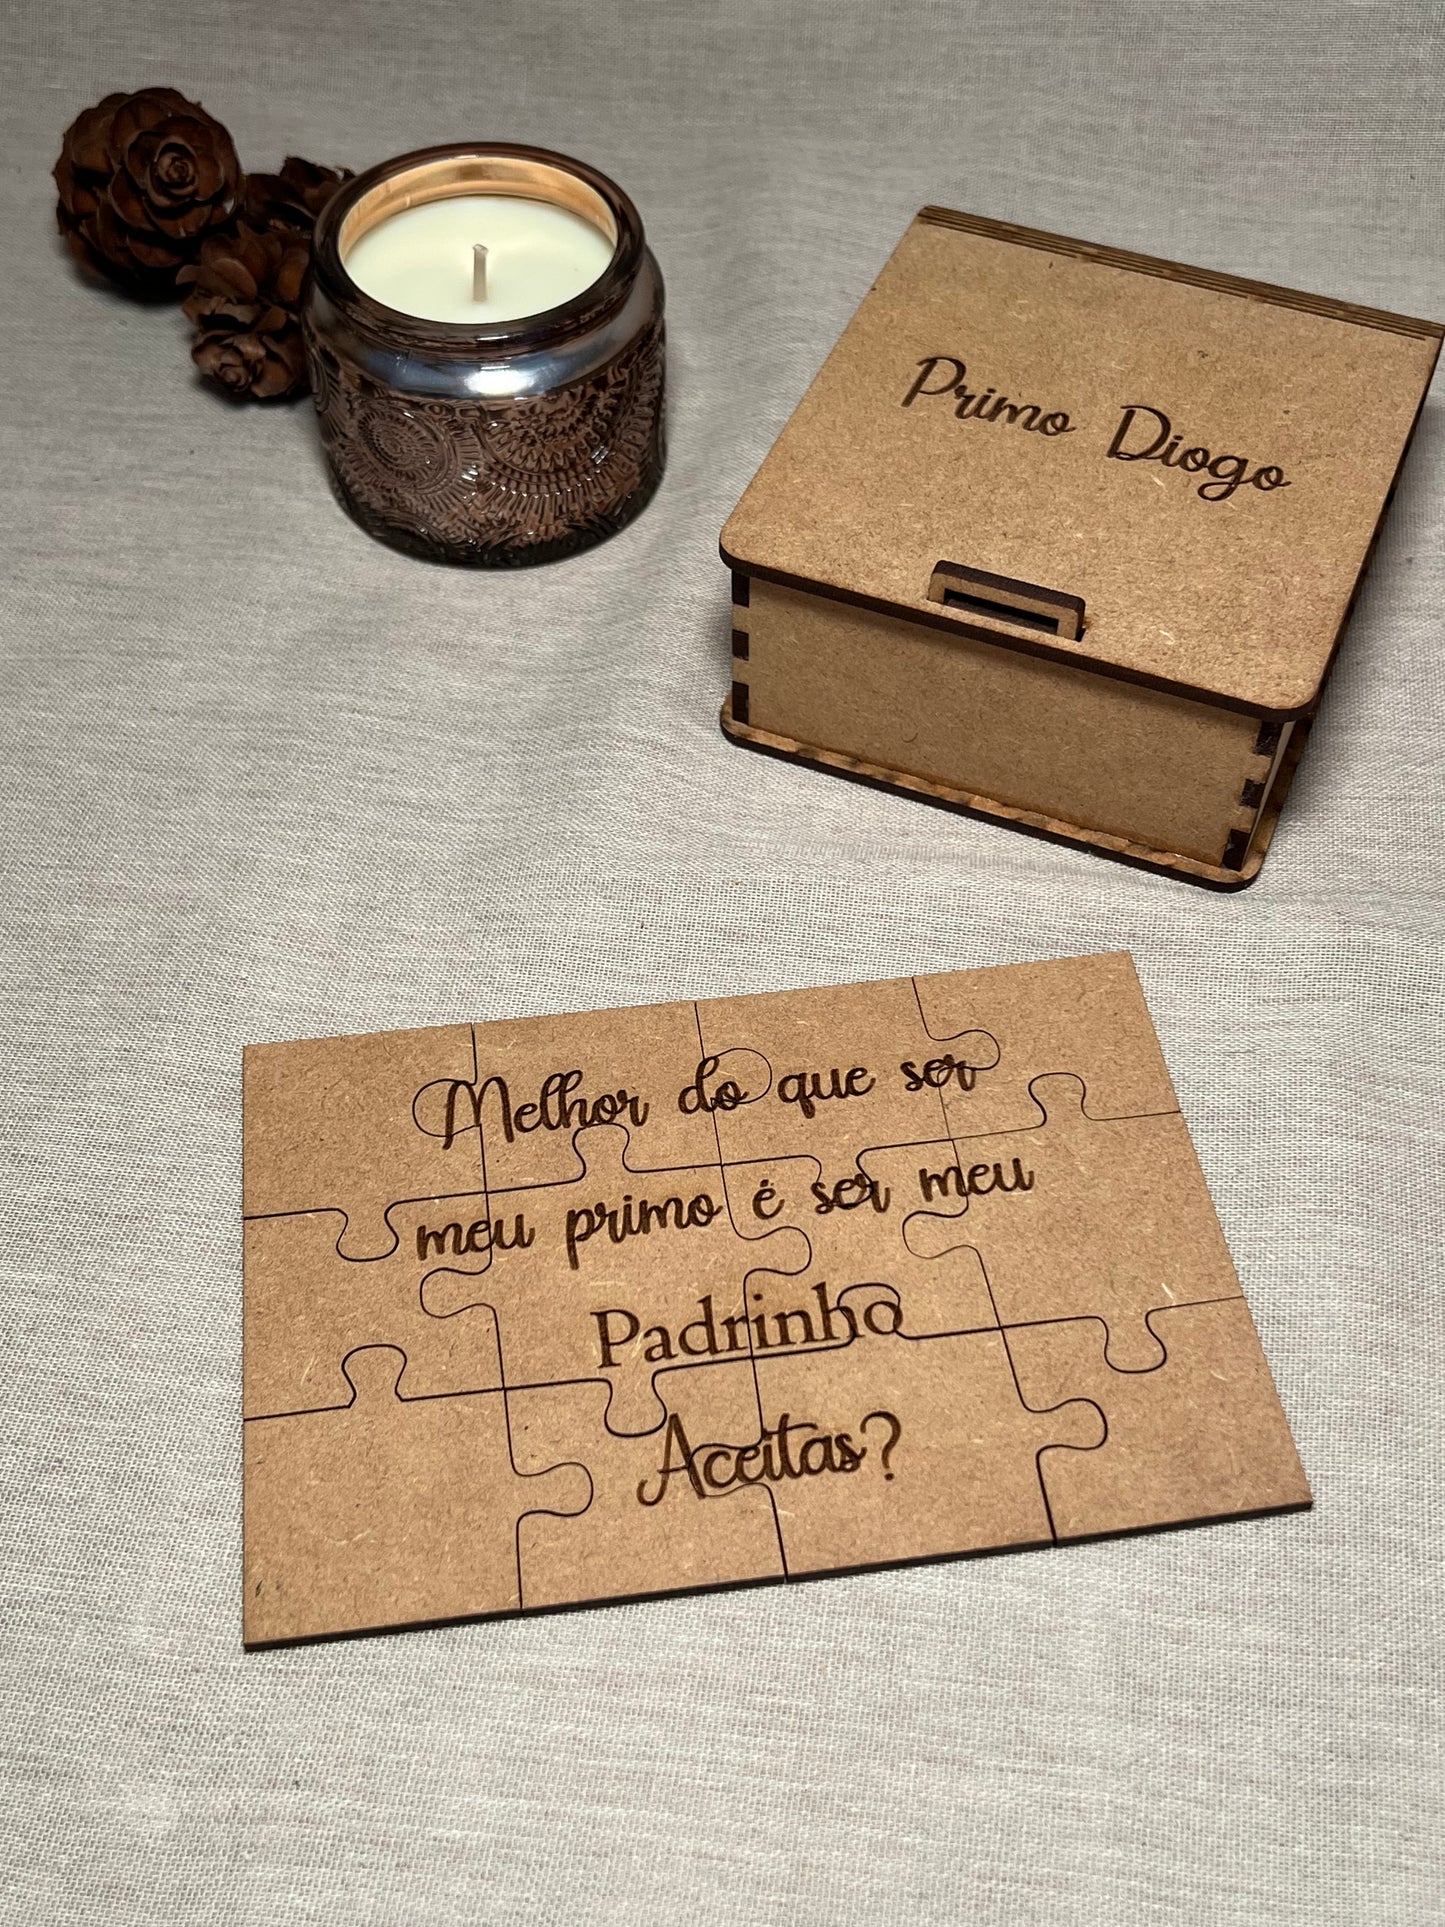 Primo Diogo
Melhor do que ser
meu primo é ser meu
Padrinho
Aceitas?